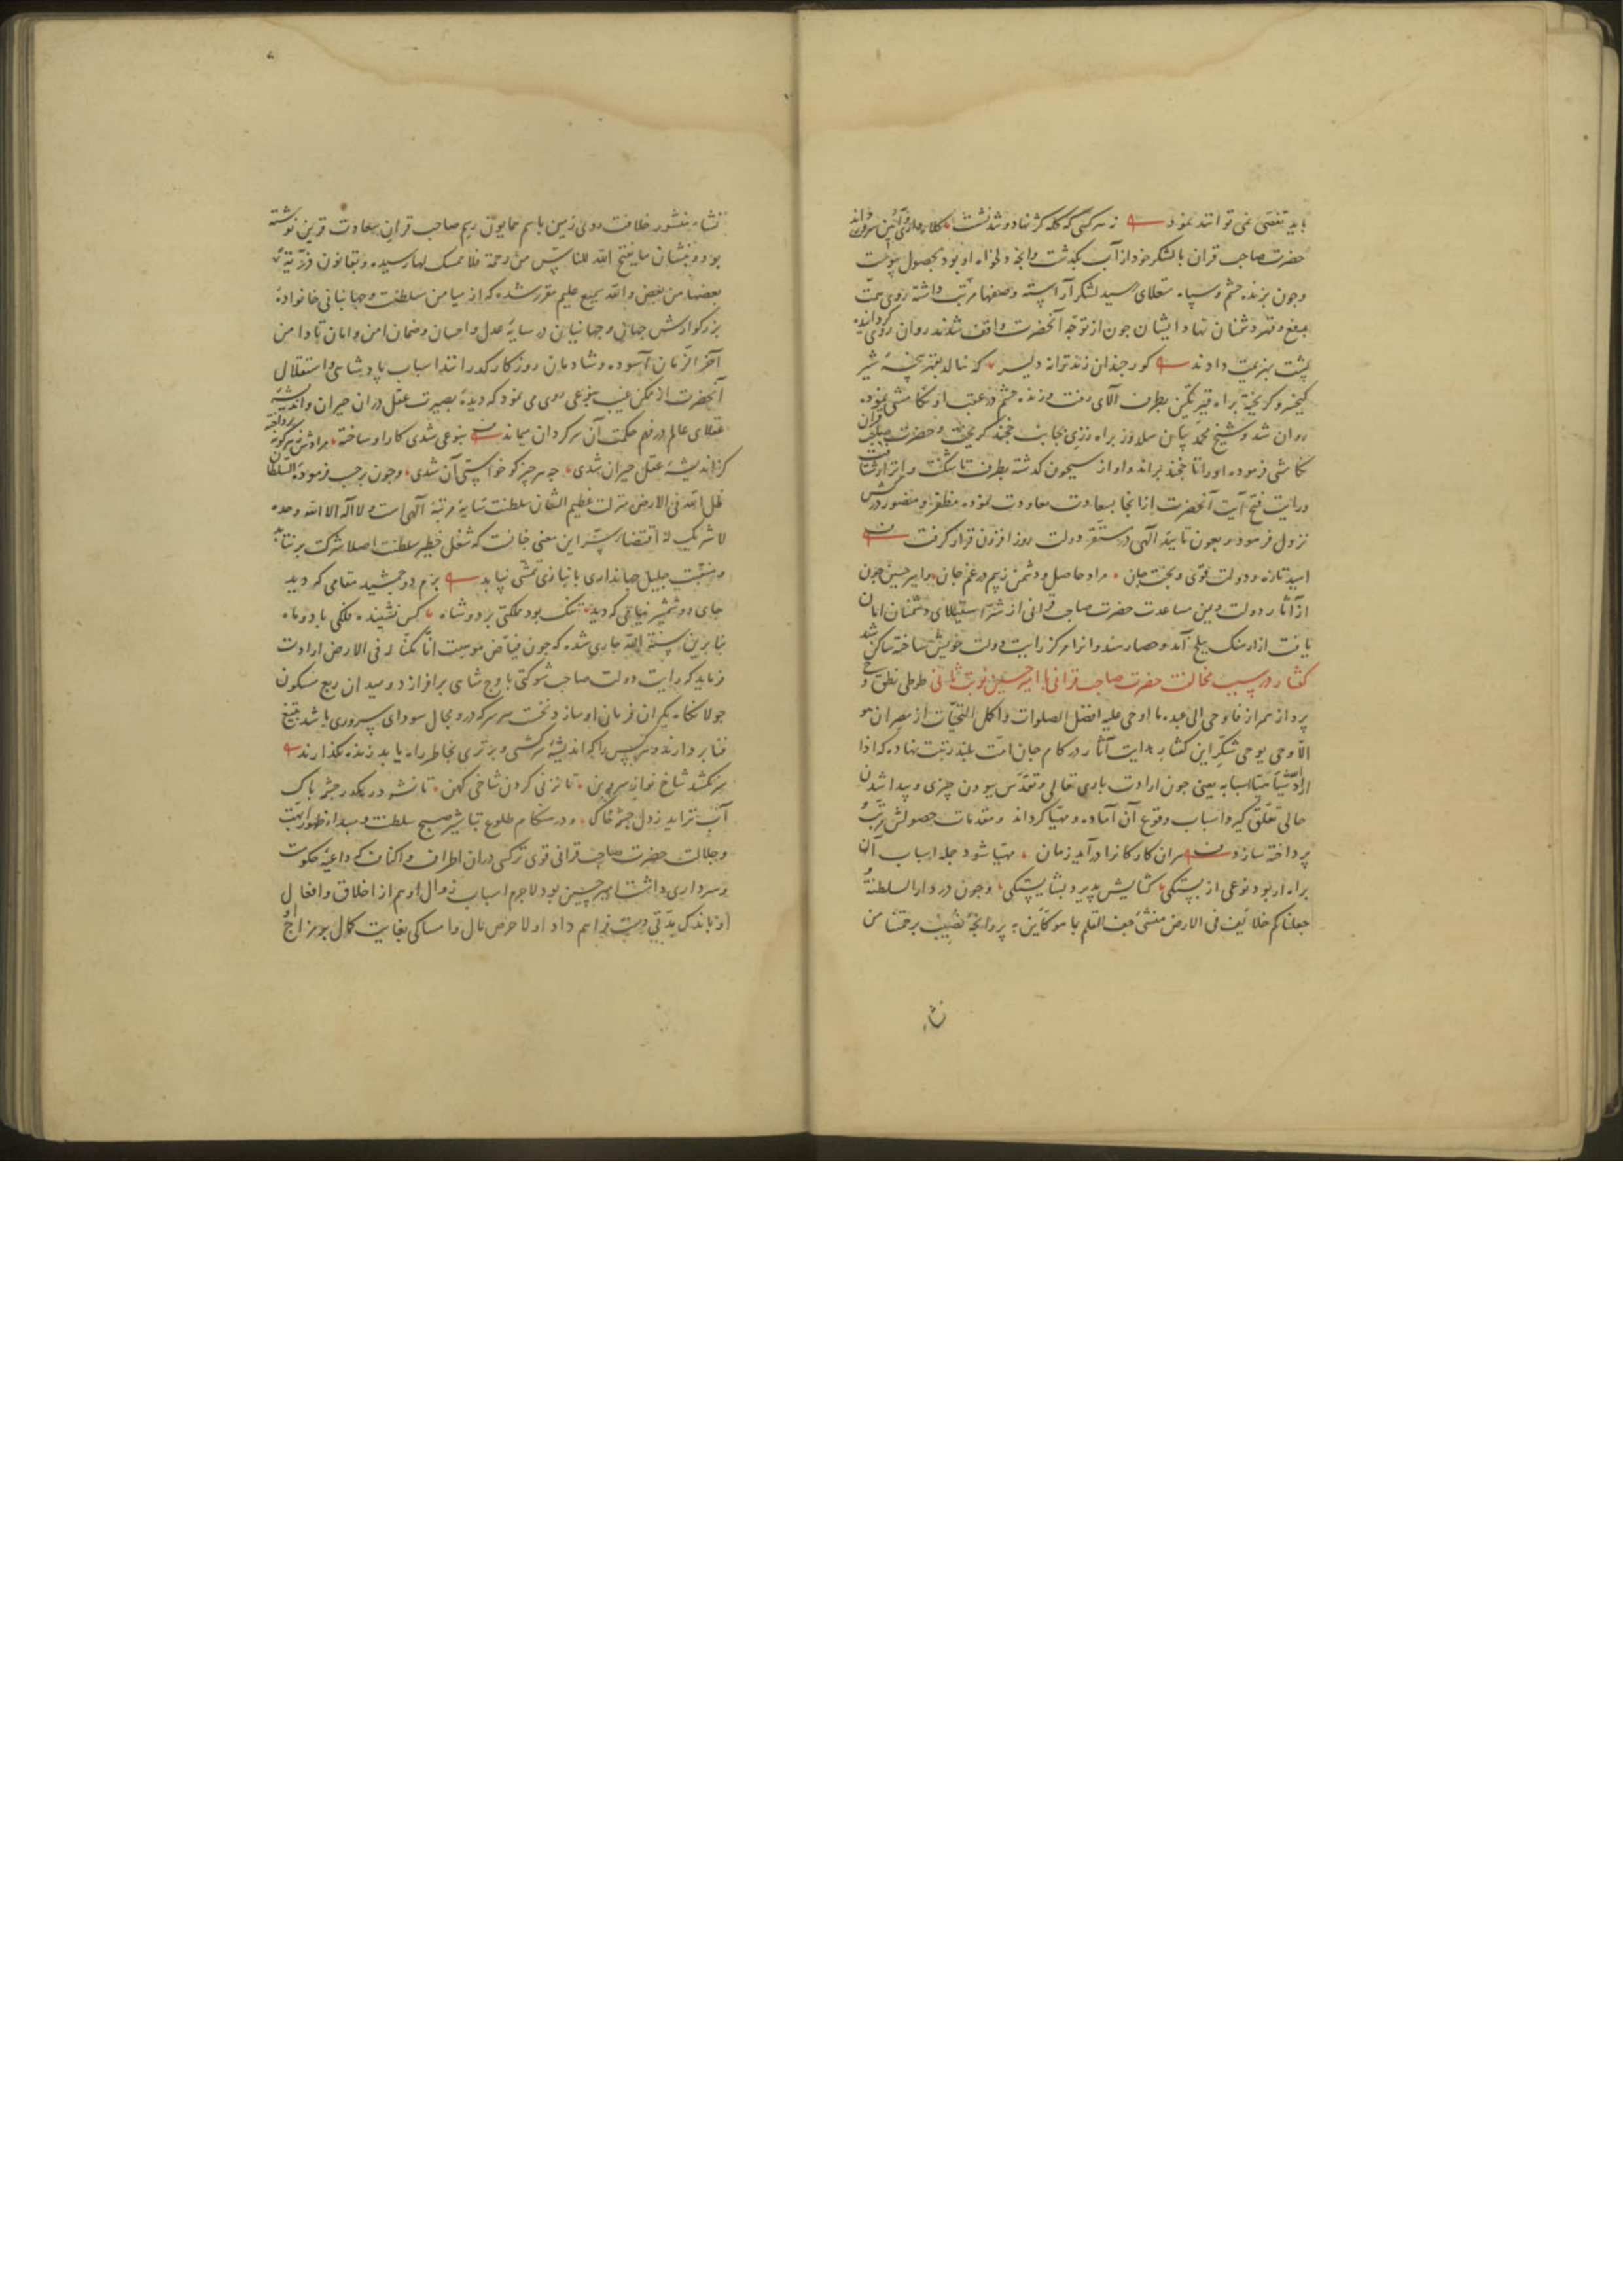 باید تفصی نمی توانند نمود نه هر کسی که کله کژ نهاد و تند نشست کلاه داری و آیین سروری داند
حضرت صاحب قران با لشکر خود از آب بگذشت و آنچه دلخواه او بود بحصول پیوست
وچون بزنده حشم وسپاه منقلای رسید لشکر آراسته وصفها مرتب داشته روی همت
بدفع وقهر دشمنان نهاد ایشان چون از توجه آنحضرت واقف شدند روان روی گردانیده
پشت بهزیمت دادند گور چندان زند ترانه دلیر که ننالد بقهر پنجه شیر
کیخسرو گریخته براه بطرف آلای رفت وزنده حشم در عقب او تکامشی نموده
روان شد وشیخ محمد بیان سلدوز براه بجانب خجند گریخت وحضرت صاحب قران
تکامشی فرموده او را تا خجند براند و او از سیحون گذشته بطرف تاشکنت و اترار شتافت
ورایت فتح آیت آنحضرت از آنجا بسعادت معاودت نموده مظفر ومنصور در کش
نزول فرمود وبعون تایید آلهی در مستقر دولت روز افزون قرار گرفت
امید تازه ودولت قوی وبخت جوان مراد حاصل ودشمن زبیم در غم جان وامیر حسین چون
از آثار دولت ویمن مساعدت حضرت صاحب قرانی از شر استیلای دشمنان امان
یافت از ارهنگ ببلخ آمد وحصار هندوانرا مرکز رایت دولت خویش ساخته ساکن شد
گفتار در سبب مخالفت حضرت صاحب قرانی با امیر حسین نوبت ثانی طوطی نطق و
پرداز همراز فاوحی الی عبده ما اوحی علیه افضل الصلوات واکمل التحیات از مصر ان هو
الا وحی یوحی شکر این گفتار هدایت آثار در کام جان امت بلند رتبت نهاده که اذا
اراد الله شیأ هیأ اسبابه یعنی چون ارادت باری تعالی وتقدس ببودن چیزی وپیدا شدن
حالی تعلق گیرد اسباب وقوع آن آماده ومهیا گرداند ومقدمات حصولش مرتب و
پرداخته سازد هران کار کانرا درآید زمان مهیا شود جمله اسباب آن
براه ار بود نوعی از بستگی گشایش پذیرد بشایستگی وچون در دار السلطنه
جعلناکم خلائف فی الارض منشی جف القلم بما هو کاین پروانچه نصیب برحمتنا من
نشا
نشاء منشور خلافت روی زمین باسم همایون رسم صاحب قران سعادت قرین نوشته
بود ونشان ما یفتح الله للناس من رحمة فلا ممسک لها رسیده وبقانون ذریة
بعضها من بعض والله سمیع علیم مقرر شده که از میامن سلطنت وجهانبانی خانواده
بزرگوارش جهانی وجهانیان در سایه عدل واحسان وضمان امن وامان تا دامن
آخر الزمان آسوده وشادمان روزگار گذرانند اسباب پادشاهی واستقلال
آنحضرت از ممکن غیب بنوعی روی می نمود که دیده بصیرت عقل دران حیران واندیشه
عقلای عالم در فهم حکمت آن سرگردان میماند بنوعی شدی کار او ساخته مرادش زهر گونه پرداخته
کز اندیشه عقل حیران شدی چه هر چیز کو خواستی آن شدی وچون برحسب فرموده السلطان
ظل الله فی الارض منزلت عظیم الشان سلطنت سایه مرتبه آلهی است ولا اله الا الله وحده
لا شریک له اقتضاء این معنی چنانست که شغل خطیر سلطنت اصلا شرکت برنتابد
ومنقبت جلیل جهانداری بانبازی تمشی نیابد بزم دو جمشید مقامی که دید
جای دو شمشیر نیامی که دید تنگ بود مملکتی بر دو شاه کس نشنیده فلکی با دو ماه
بنا برین سنة الله جاری شده که چون فیاض موهبت انا مکنا له فی الارض ارادت
فرماید که رایت دولت صاحب شوکتی باوج شاهی برافرازد ومیدان ربع مسکون
جولانگاه یکران فرمان او سازد نخست هر سر که درو مجال سودای سروری باشد بتیغ
فنا بردارند وهر کس را که اندیشه سرکشی وبرتری بخاطر راه یابد زنده نگذارند
سر نکشد شاخ نو از سرو بن تا نزنی گردن شاخ کهن تا نشود رهگذر چشمه پاک
آب نزاید ز دل چشمه خاک ودر هنگام طلوع تباشیر صبح سلطنت ومبداء ظهور ابهت
وجلالت حضرت صاحب قرانی قوی ترکسی دران اطراف واکناف که داعیه حکومت
وسرداری داشت امیر حسین بود لاجرم اسباب زوال او هم از اخلاق وافعال
او باندک مدتی دست فراهم داد اولا حرص مال وامساکی بغایت کمال بر مزاج